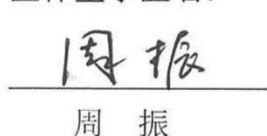 周振
周 振